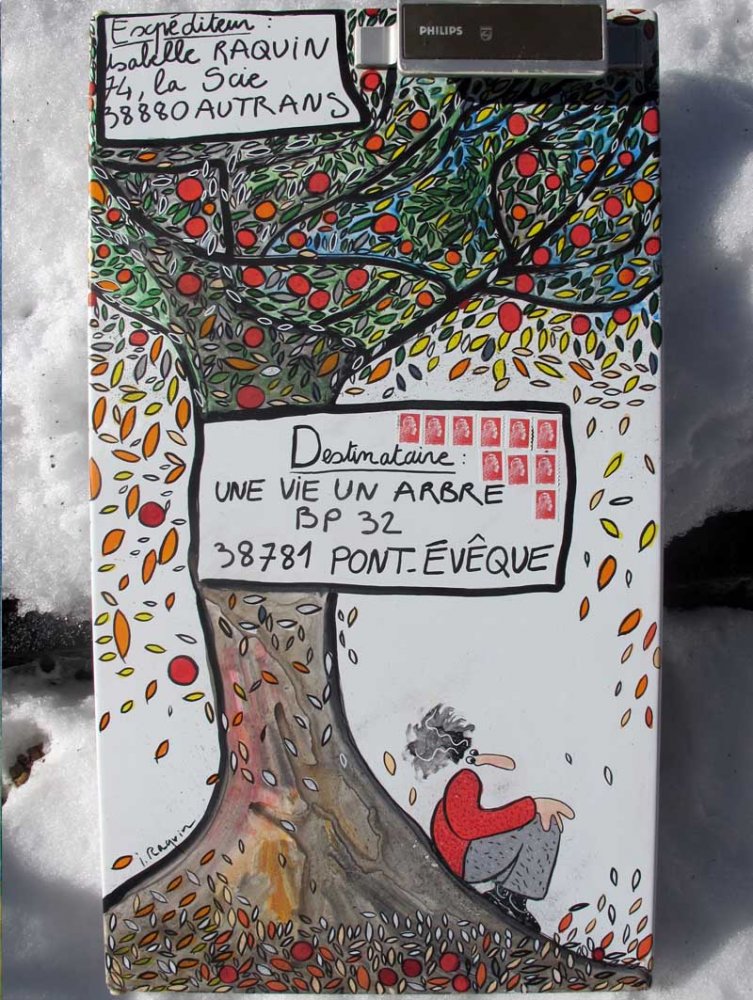 PHILIPS
Expéditeur :
isabelle RAQUIN
74, la Scie
38880 AUTRANS
Destinataire :
UNE VIE UN ARBRE
BP 32
38781 PONT-ÉVÊQUE
i. Raquin